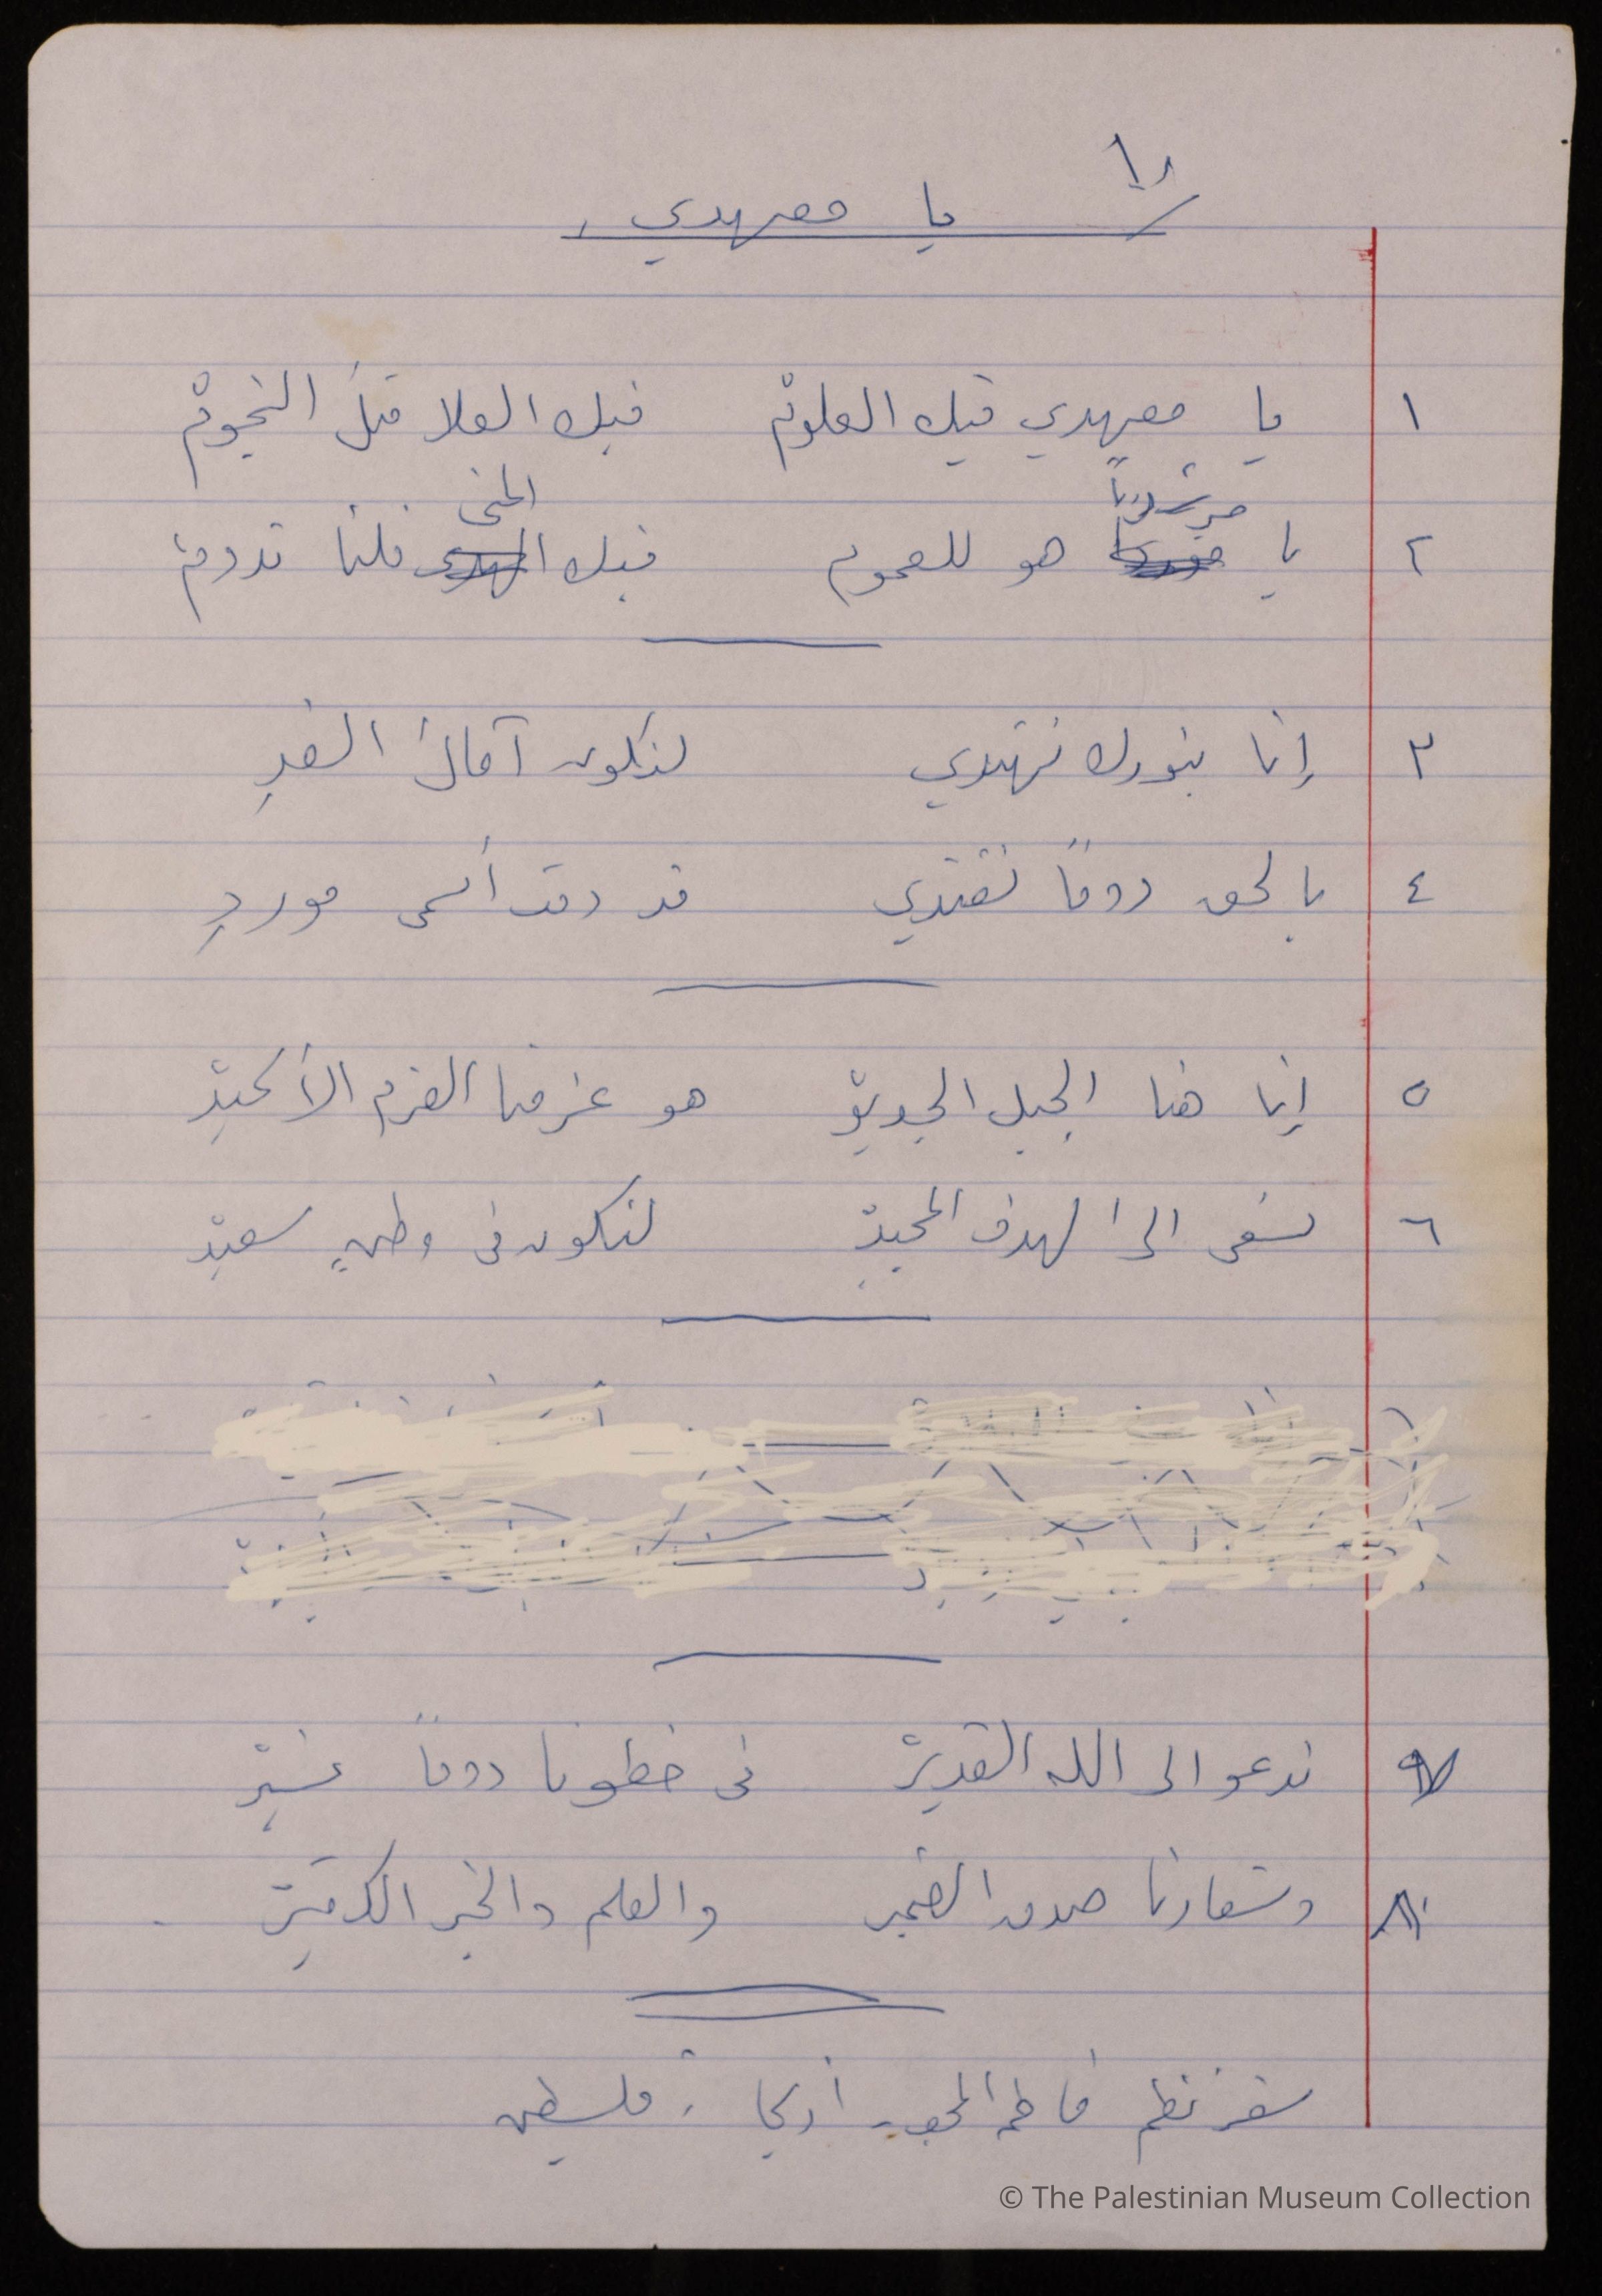 يا معهدي
١ يا معهدي فيك العلومْ فيك العلا مثلُ النجومْ
مرشداً المنى
٢ يا هو للعموم فيك فلنا تدومْ
٣ إنا بنورك نهتدي لنكون آمالَ الغدِ
٤ بالحق دوماً نقتدي قد دمت أسمى موردِ
٥ إنا هنا الجيل الجديدْ هو عزمنا العزم الأكيدْ
٦ نسعى الى الهدف المجيدْ لنكون في وطنٍ سعيدْ
٧ ندعو الى الله القديرْ في خطونا دوماً نسيرْ
٨ وشعارنا صدق الضمير والعلم والخير الكثيرْ
شعر نظم فاطمة المحب - أريحا - فلسطين
© The Palestinian Museum Collection